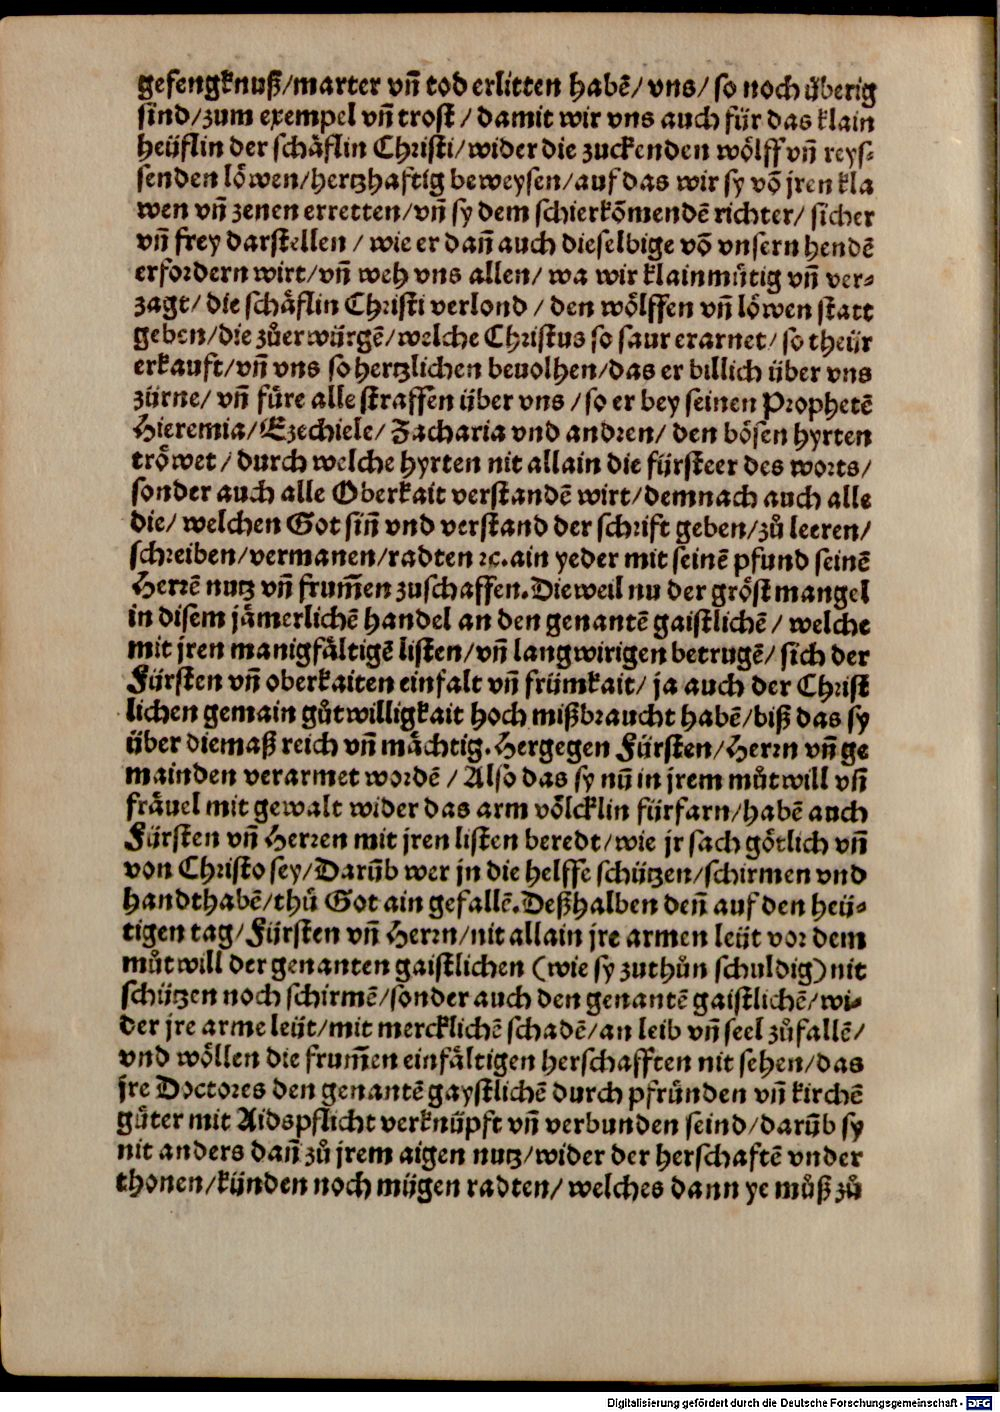 gefengknuß/marter vn̄ tod erlitten habē/ vns/ so noch überig
sind/zum exempel vn̄ trost / damit wir vns auch für das klain
heüflin der schäflin Christi/ wider die zuckenden wölff vn̄ reys⸗
senden löwen/hertzhaftig beweysen/auf das wir sy vō jren kla
wen vn̄ zenen erretten/vn̄ sy dem schierkōmendē richter/ sicher
vn̄ frey darstellen / wie er dan̄ auch dieselbige vō vnsern hendē
erfordern wirt/vn̄ weh vns allen/ wa wir klainmütig vn̄ ver⸗
zagt/ die schäflin Christi verlond / den wölffen vn̄ löwen statt
geben/die zůerwürgē/welche Christus so saur erarnet/ so theür
erkauft/vn̄ vns so hertzlichen beuolhen/das er billich über vns
zürne/ vn̄ füre alle straffen über vns /so er bey seinen Prophetē
Hieremia/Ezechiele/ Zacharia vnd andren/ den bösen hyrten
tröwet / durch welche hyrten nit allain die fürsteer des worts/
sonder auch alle Oberkait verstandē wirt/demnach auch alle
die/ welchen Got sin̄ vnd verstand der schrift geben/zů leeren/
schreiben/vermanen/radten ꝛc.ain yeder mit seinē pfund seinē
Herrē nutz vn̄ frum̄en zuschaffen.Dieweil nu der gröst mangel
in disem jämerlichē handel an den genantē gaistlichē / welche
mit jren manigfältigē listen/vn̄ langwirigen betrugē/ sich der
Fürsten vn̄ oberkaiten einfalt vn̄ frümkait/ ja auch der Christ
lichen gemain gůtwilligkait hoch mißbraucht habē/biß das sy
über diemaß reich vn̄ mächtig. Hergegen Fürsten/Herrn vn̄ ge
mainden verarmet wordē / Also das sy nu̅ in jrem můtwill vn̄
fräuel mit gewalt wider das arm völcklin fürfarn/habē auch
Fürsten vn̄ Herren mit jren listen beredt/wie jr sach götlich vn̄
von Christo sey/Daru̅b wer jn die helffe schützen/schirmen vnd
handthabē/thů Got ain gefallē.Deßhalben den̄ auf den heü⸗
tigen tag/Fürsten vn̄ Herrn/nit allain jre armen leüt vor dem
můtwill der genanten gaistlichen (wie sy zuthůn schuldig)nit
schützen noch schirmē/sonder auch den genantē gaistlichē/wi⸗
der jre arme leüt/mit mercklichē schadē/an leib vn̄ seel zůfallē/
vnd wöllen die frum̄en einfältigen herschafften nit sehen/das
jre Doctores den genantē gaystlichē durch pfründen vn̄ kirchē
güter mit Aidspflicht verknüpft vn̄ verbunden seind/daru̅b sy
nit anders dan̄ zů jrem aigen nutz/wider der herschaftē vnder
thonen/künden noch mügen radten/ welches dann ye můß zů
Digitalisierung gefördert durch die Deutsche Forschungsgemeinschaft - DFG